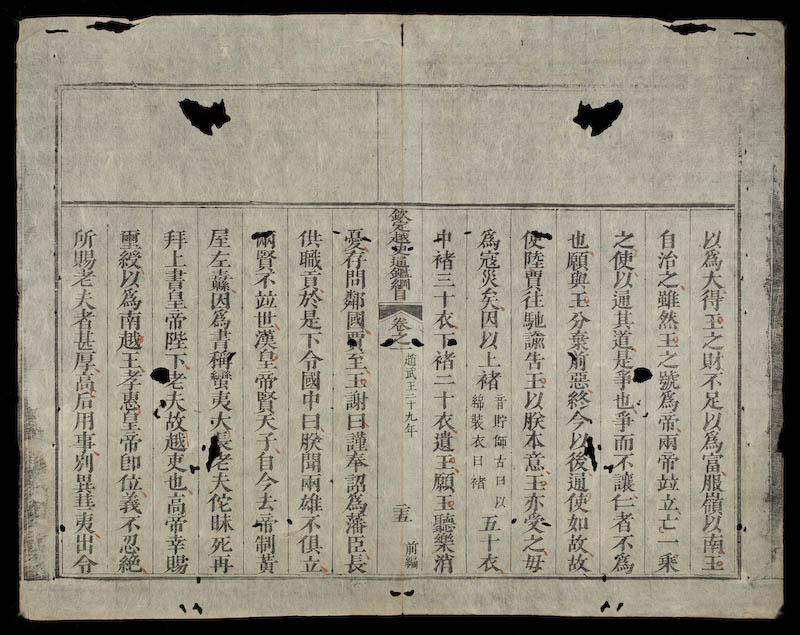 以爲大得王之財不足以爲富服嶺以南王
自治之雖然王之號爲帝兩帝竝立亡一乘
之使以通其道是爭也爭而不讓仁者不爲
也願與王分棄前惡終今以後通使如故故
使陸賈往馳諭告王以朕本意王亦受之毋
爲寇災矣因以上褚音貯師古曰以綿裝衣曰褚五十衣
中褚三十衣下褚二十衣遺王願王聽樂消
欽定越史通鑑綱目 卷之一 趙武王二十九年 二十五 前編
憂存問鄰國賈至王謝曰謹奉詔爲藩臣長
供職貢於是下令國中曰朕聞兩雄不俱立
兩賢不竝世漢皇帝賢天子自今去帝制黃
屋左纛因爲書稱蠻夷大長老夫佗昧死再
拜上書皇帝陛下老夫故越吏也高帝幸賜
璽綬以爲南越王孝惠皇帝卽位義不忍絶
所賜老夫者甚厚高后用事別異華夷出令